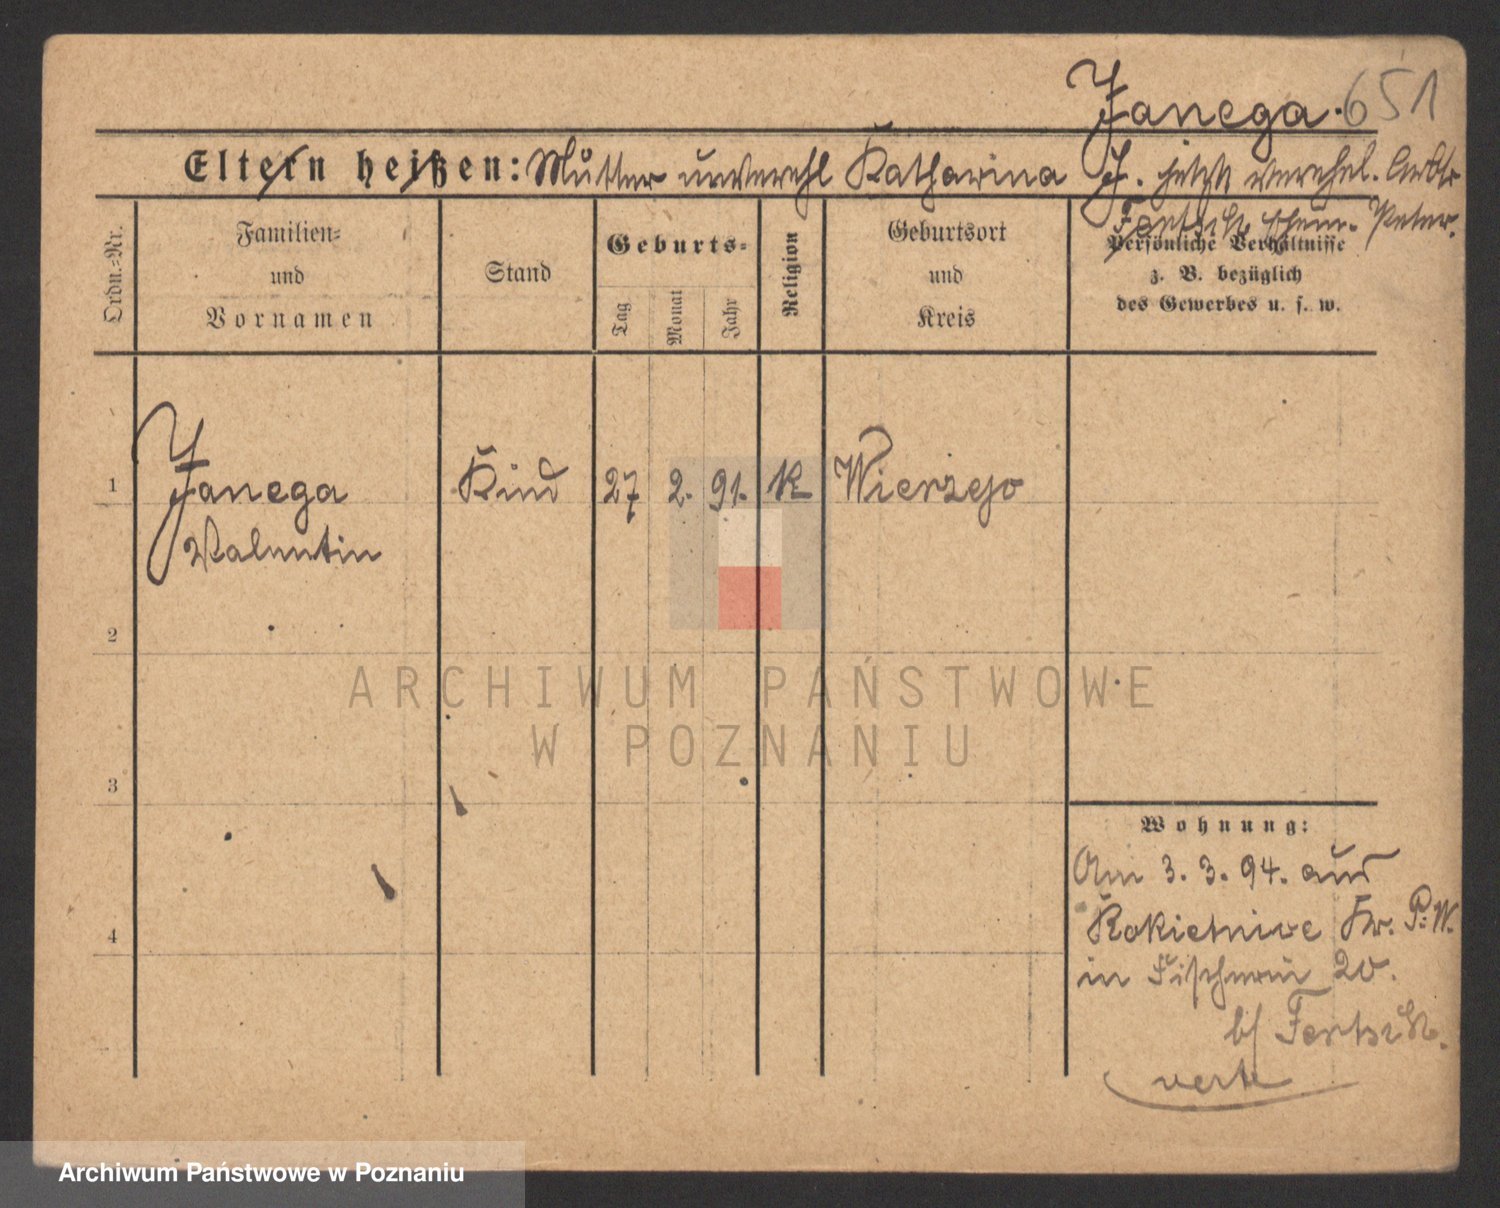 Janega. 651
Eltern heißen: Mutter unverehl Katharina J. jetzt verehel. Arbtr
Fertsch, Ehem. Peter.
Ordn.-Nr.
Familien-
und
Vornamen
Stand
Geburts-
Tag
Monat
Jahr
Religion
Geburtsort
und
Kreis
Persönliche Verhältnisse
z. B. bezüglich
des Gewerbes u. s. w.
1 Janega Kind 27 2. 91. K Wierzejo
Valentin
2
ARCHIWUM PAŃSTWOWE
W POZNANIU
3
Wohnung:
Am 3. 3. 94. aus
4
Rokietnice Kr. P. W.
in Fischerei 20.
b/
verte
Archiwum Państwowe w Poznaniu